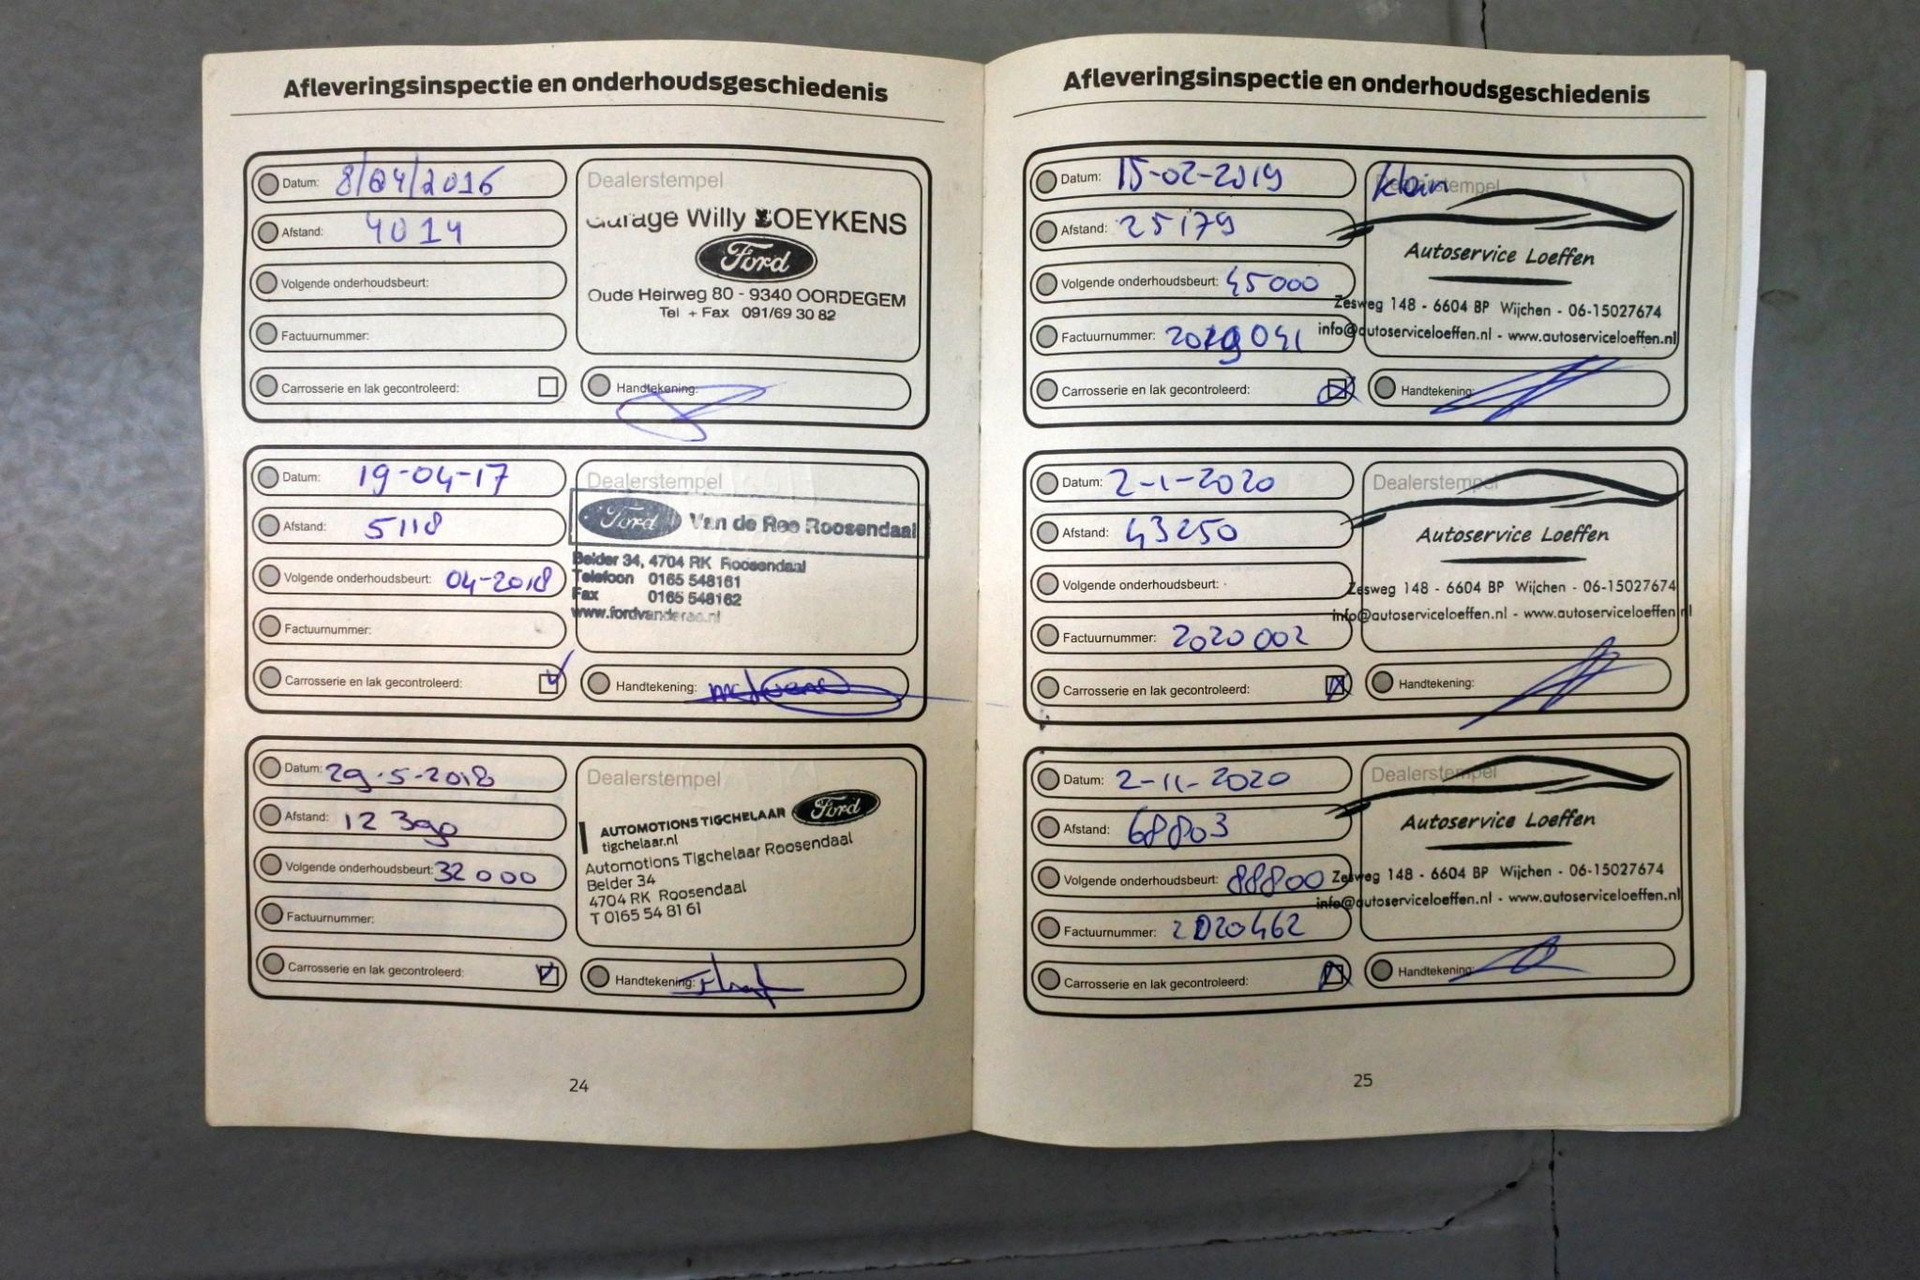 Afleveringsinspectie en onderhoudsgeschiedenis
Datum: 8/04/2016
Afstand: 4014
Volgende onderhoudsbeurt:
Factuurnummer:
Carrosserie en lak gecontroleerd:
Dealerstempel
Garage Willy
Ford
Oude Heirweg 80 - 9340 OORDEGEM
Tel + Fax 091/69 30 82
Handtekening:
Datum: 19-04-17
Afstand: 5118
Volgende onderhoudsbeurt: 04-2018
Factuurnummer:
Carrosserie en lak gecontroleerd:
Dealerstempel
Ford Van de Ree Roosendaal
Belder 34, 4704 RK Roosendaal
Telefoon 0165 548161
Fax 0165 548162
Handtekening:
Datum: 29-5-2018
Afstand: 12 390
Volgende onderhoudsbeurt: 32000
Factuurnummer:
Carrosserie en lak gecontroleerd:
Dealerstempel
AUTOMOTIONS TIGCHELAAR Ford
tigchelaar.nl
Automotions Tigchelaar Roosendaal
Belder 34
4704 RK Roosendaal
T 0165 54 81 61
Handtekening:
24
Afleveringsinspectie en onderhoudsgeschiedenis
Datum: 15-02-2019
Afstand: 25179
Volgende onderhoudsbeurt: 45000
Factuurnummer: 2019041
Carrosserie en lak gecontroleerd:
klein
Dealerstempel
Autoservice Loeffen
Zesweg 148 - 6604 BP Wijchen - 06-15027674
info@autoserviceloeffen.nl - www.autoserviceloeffen.nl
Handtekening:
Datum: 2-1-2020
Afstand: 43250
Volgende onderhoudsbeurt:
Factuurnummer: 2020002
Carrosserie en lak gecontroleerd:
Dealerstempel
Autoservice Loeffen
Zesweg 148 - 6604 BP Wijchen - 06-15027674
info@autoserviceloeffen.nl - www.autoserviceloeffen.nl
Handtekening:
Datum: 2-11-2020
Afstand: 68803
Volgende onderhoudsbeurt: 88800
Factuurnummer: 2020462
Carrosserie en lak gecontroleerd:
Dealerstempel
Autoservice Loeffen
Zesweg 148 - 6604 BP Wijchen - 06-15027674
info@autoserviceloeffen.nl - www.autoserviceloeffen.nl
Handtekening:
25